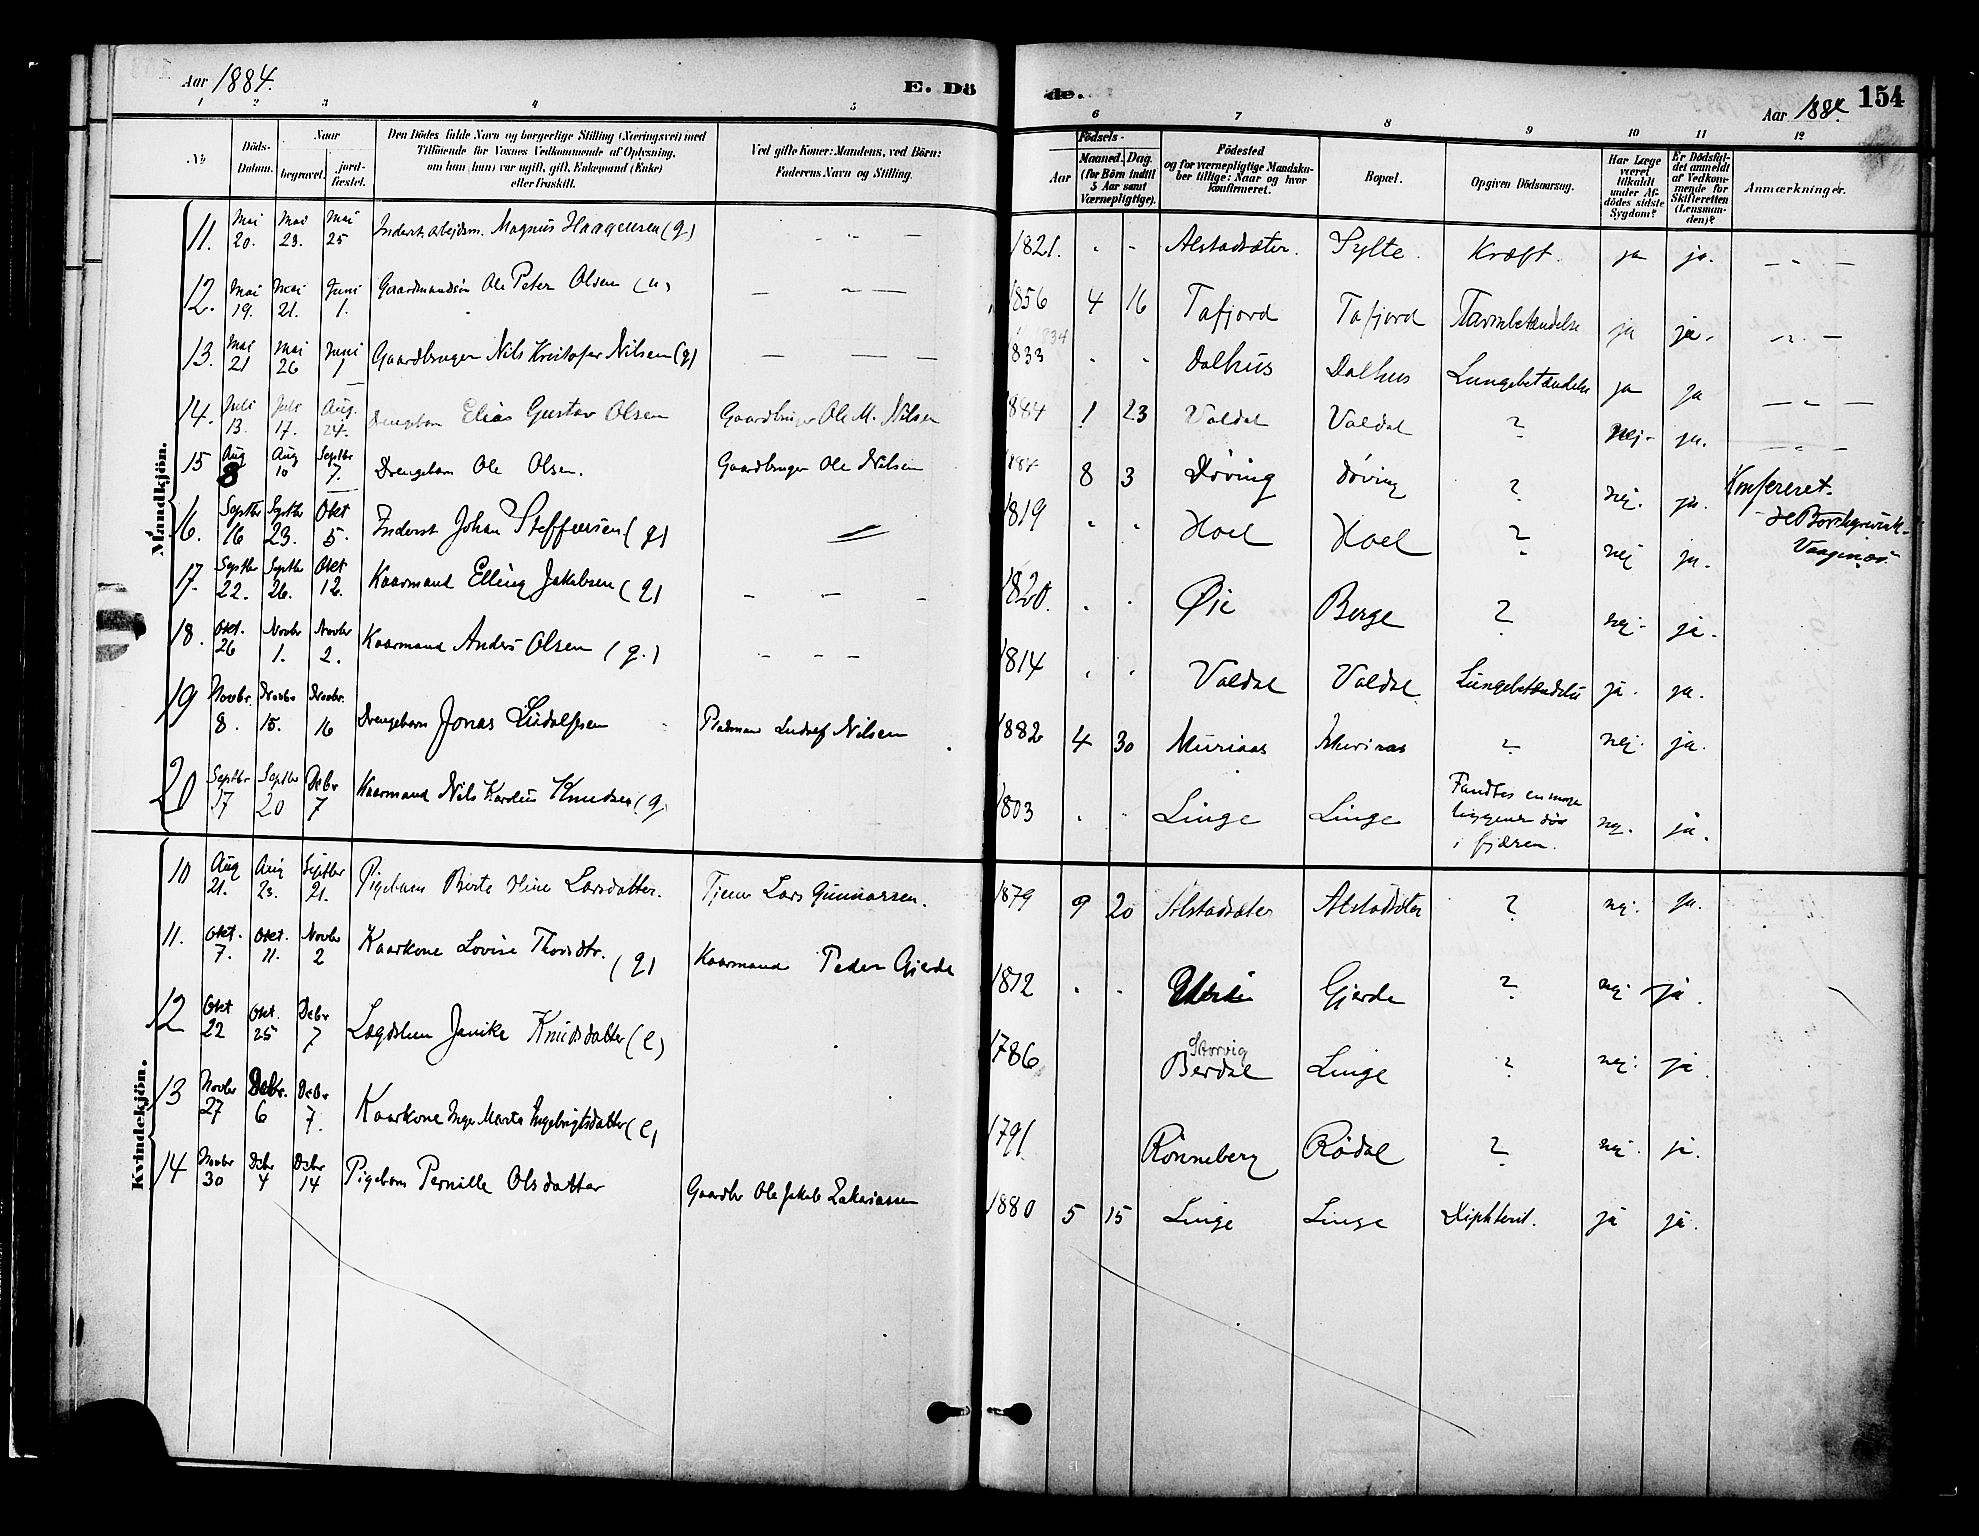 Aar 1884.
E. Döde.
Aar 1884.
154
1 2 3 4 5 6 7 8 9 10 11 12
No
Döds-Datum.
Naar
begravet.
jord-fæstet.
Den Dödes fulde Navn og borgerlige Stilling (Næringsvei) med
Tilföiende for Voxnes Vedkommende af Oplysning,
om han (hun) var ugift, gift, Enkemand (Enke)
eller fraskilt.
Ved gifte Koner: Mandens, ved Börn:
Faderens Navn og Stilling.
Födsels-
Aar
Maaned. Dag.
(for Börn indtil
5 Aar samt
Værnepligtige).
Födested
og for værnepligtige Mandska-
ber tillige: Naar og hvor
Konfirmeret.
Bopæl.
Opgiven Dödsaarsag.
Har Læge
været
tilkaldt
under Af-
dödes sidste
Sygdom?
Er Dödsfal-
det anmeldt
af Vedkom-
mende for
Skifteretten
(Lensman-
den)?
Anmærkninger.
Mandkjön.
11. Mai 20. Mai 23. Mai 25 Inderst. arbejdsm. Magnus Haagensen (g.) - - - 1821. - - Alstadsæter. Sylte. Kræft. ja ja. - - -
12. Mai 19. Mai 21. Juni 1. Gaardmandssøn Ole Peter Olsen (u) - - - 1856 4 16 Tafjord Tafjord Tarmbetændelse ja ja. - - -
13. Mai 21 Mai 26 Juni 1 Gaardbruger Nils Kristofer Nilsen (g) - - - 1833 - - Dalhus Dalhus Lungebetændelse ja ja - - -
14. Juli 13. Juli 17. Aug. 24. Drengebarn Elias Gustav Olsen Gaardbruger Ole M. Nilsen 1884 1 23 Valdal Valdal ? Nej. ja. - - -
15 Aug 8 Aug 10 Septbr 7. Drengebarn Ole Olsen. Gaardbruger Ole Nilsen 1884 8 3 Døving Døving ? nej. ja. Konfereret.
16. Septbr 16 Septbr 23. Okt 5. Inderst Johan Steffensen (g) 1819 - - Hoel Hoel ? nej ja.
17. Septbr 22. Septbr 26. Okt 12. Kaarmand Elling Jakobsen (g) - - - 1820. - - Øie Berge ? nej. ja.
18. Okt. 26 Novbr 1. Novbr 2. Kaarmand Anders Olsen (g.) - - - 1814 - - Valdal Valdal Lungebetændelse ja. ja.
19 Novbr. 8. Novbr 15. Novbr. 16 Drengebarn Jonas Ludolfsen Pladsman Ludolf Nilsen 1882 4 30 Muriaas Muriaas ? nej. ja.
20 Septbr 17 Septbr 20 Debr 7 Kaarmand Nils Knudsen (g) 1803 - - Linge Linge Fandtes en morgen liggende død i fjæren. nej. ja.
Kvindekjön.
10 Aug 21. Aug 23. Septbr 21. Pigebarn Berte Oline Larsdatter. Tjener Lars Gunnarsen. 1879 9 20 Alstadsæter Alstadsæter ? nej. ja.
11. Okt. 7. Okt. 11. Novbr 2 Kaarkone Lovise Thorsdtr. (g) Kaarmand Peder Gjerde 1812 - - Gjerde ? nej. ja.
12 Okt 22 Okt. 25 Debr 7 Lægdslem Janike Knudsdatter (e) 1786 Storvig Berdal Linge ? nej. ja.
13 Novbr 27 Debr. 6 Debr 7. Kaarkone Inger Marta Ingebrigtsdatter (e) 1791 Rønneberg Rødal ? nej. ja.
14 Novbr 30 Debr 4 Debr 14 Pigebarn Pernille Olsdatter Gaardbr Ole Jakob Zakariassen 1880 5 15 Linge Linge Diphterit. ja ja.